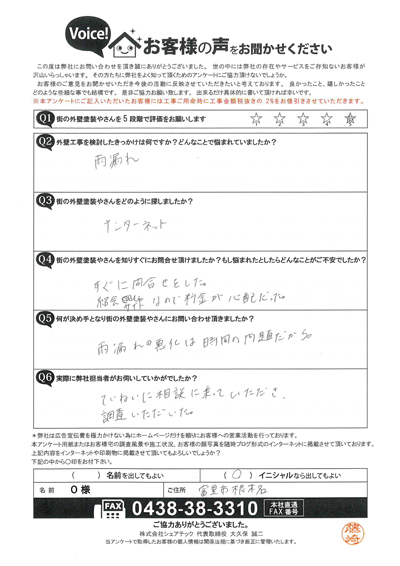 Voice!
お客様の声をお聞かせください
この度は弊社にお問い合わせを頂き誠にありがとうございました。世の中には弊社の存在やサービスをご存知ないお客様が
沢山いらっしゃいます。その方たちに弊社をよく知って頂くためのアンケートにご協力頂けないでしょうか。
お客様のご意見をお聞かせいただき今後の活動に反映させていただきたいと考えております。良かったこと、嬉しかったこと
どのような些細な事でも結構です。是非ご協力お願い致します。出来るだけ具体的に書いて頂ければ幸いです。
※本アンケートにご記入いただいたお客様には工事ご用命時に工事金額税抜きの2%をお値引きさせていただきます。
Q1 街の外壁塗装やさんを5段階で評価をお願いします
Q2 外壁工事を検討したきっかけは何ですか？どんなことで悩まれていましたか？
雨漏れ
Q3 街の外壁塗装やさんをどのように探しましたか？
インターネット
Q4 街の外壁塗装やさんを知りすぐにお問合せ頂けましたか？もし悩まれたとしたらどんなことがご不安でしたか？
すぐに問合せをした。
紹介サイトなので料金が心配だった。
Q5 何が決め手となり街の外壁塗装やさんにお問い合わせ頂けましたか？
雨漏れの悪化は時間の問題だから
Q6 実際に弊社担当者がお伺いしていかがでしたか？
ていねいに相談に乗っていただき、
調査いただいた。
*弊社は広告宣伝費を極力かけない為にホームページだけを頼りお客様への営業活動を行っております。
本アンケート用紙またはお客様宅の調査風景や施工状況、お客様の顔写真を随時ブログ形式のインターネットに掲載させて頂いております。
上記内容をインターネットや印刷物に掲載させて頂いてもよろしいでしょうか？
下記の中から〇印をお付け下さい。
（　）名前を出してもよい （〇）イニシャルなら出してもよい
名前 O様 ご住所 富里市根木名
FAX 0438-38-3310 本社直通 FAX番号
ご協力ありがとうございました。
株式会社シェアテック 代表取締役 大久保 誠二
当アンケートで取得したお客様の個人情報は関係法規に基づき厳正に管理いたします。